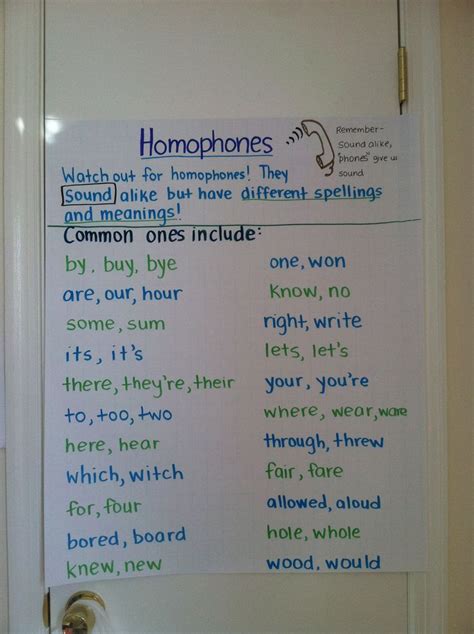 Homophones
Remember-
Sound alike,
"phones" give us
sound
Watch out for homophones! They
Sound alike but have different spellings
and meanings!
Common ones include:
by, buy, bye
are, our, hour
some, sum
its, it's
there, they're, their
to, too, two
here, hear
which, witch
for, four
bored, board
knew, new
one, won
know, no
right, write
lets, let's
your, you're
where, wear, ware
through, threw
fair, fare
allowed, aloud
hole, whole
wood, would